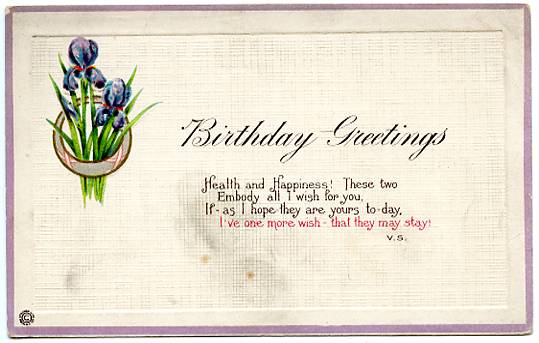 Birthday Greetings
Health and Happiness! These two
Embody all I wish for you,
If - as I hope they are yours to-day,
I've one more wish - that they may stay!
V.S.